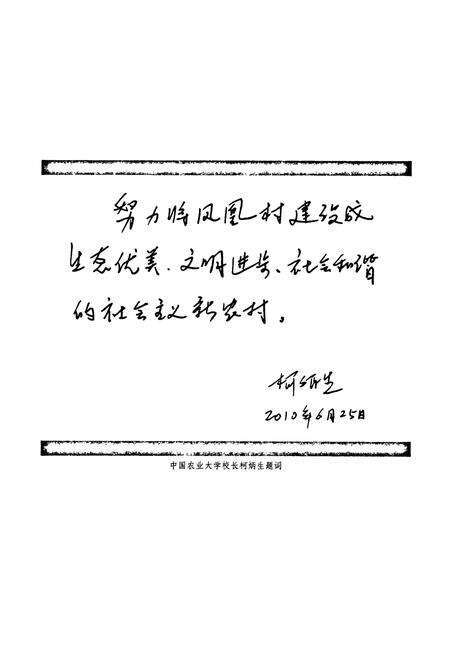 努力将凤凰村建设成
生态优美、文明进步、社会和谐
的社会主义新农村。
柯炳生
2010年6月25日
中国农业大学校长柯炳生题词